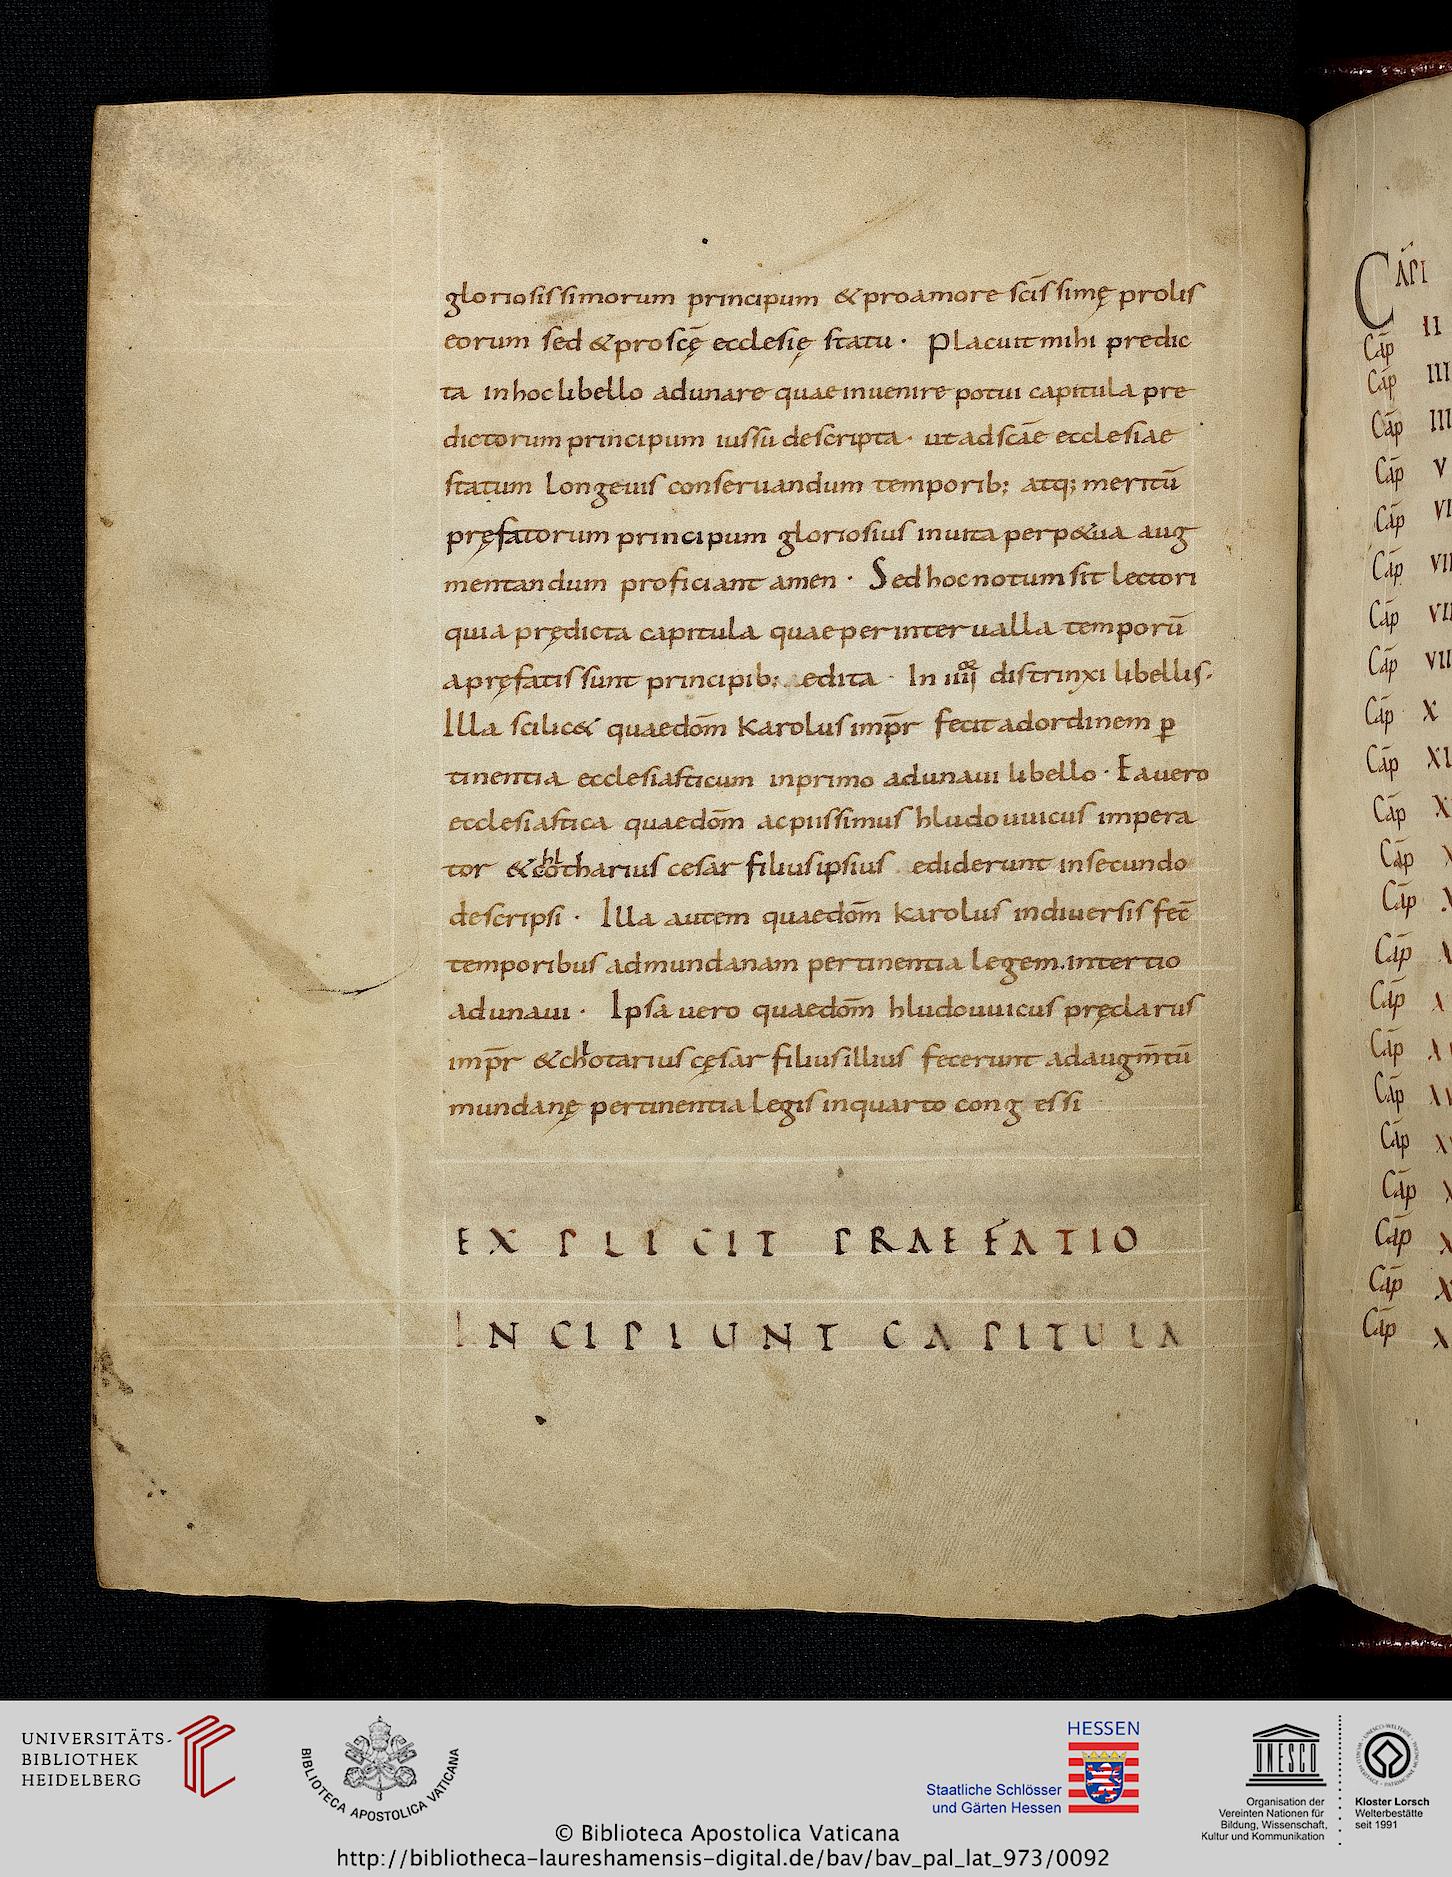 gloriosissimorum principum & pro amore sc̄issimę prolis
eorum sed & pro scę̄ ecclesię statu · Placuit mihi predic
ta in hoc libello adunare quae inuenire potui capitula pre
dictorum principum iussu descripta · ut ad scāe ecclesiae
statum longeuis conseruandum temporib; atq; meritū
pręfatorum principum gloriosius in uita perp&ua aug
mentandum proficiant amen · Sed hoc notum sit lectori
quia prędicta capitula quae per interualla temporū
a pręfatis sunt principib; edita · In iiii distrinxi libellis.
Illa scilic& quae dom̄ karolus imp̄r fecit ad ordinem ꝑ
tinentia ecclesiasticum in primo adunaui libello · Ea uero
ecclesiastica quae dom̄ ac piissimus hludouuicus impera
tor & hlotharius cesar filius ipsius ediderunt in secundo
descripsi · Illa autem quae dom̄ karolus in diuersis fec̄
temporibus ad mundanam pertinentia legem. in tertio
adunaui · Ipsa uero quae dom̄ hludouuicus pręclarus
imp̄r & chlotarius cęsar filius illius fecerunt ad augm̄tū
mundanę pertinentia legis in quarto cong essi
EXPLICIT PRAEFATIO
INCIPIUNT CAPITULA
CAPI
Cap̄ II
Cap̄ III
Cap̄ III
Cap̄ V
Cap̄ VI
Cap̄ VII
Cap̄ VII
Cap̄ VII
Cap̄ X
Cap̄ XI
Cap̄ X
Cap̄
Cap̄
Cap̄
Cap̄
Cap̄
Cap̄
Cap̄
Cap̄
Cap̄ X
Cap̄ X
Cap̄ X
UNIVERSITÄTS-
BIBLIOTHEK
HEIDELBERG
BIBLIOTECA APOSTOLICA VATICANA
HESSEN
Staatliche Schlösser
und Gärten Hessen
UNESCO
Organisation der
Vereinten Nationen für
Bildung, Wissenschaft,
Kultur und Kommunikation
Kloster Lorsch
Welterbestätte
seit 1991
© Biblioteca Apostolica Vaticana
http://bibliotheca-laureshamensis-digital.de/bav/bav_pal_lat_973/0092